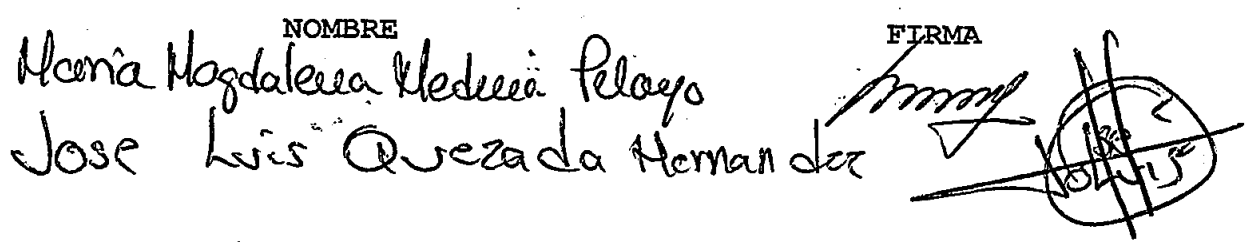 NOMBRE FIRMA
Maria Magdalena Medina Pelayo
Jose Luis Quezada Hernandez